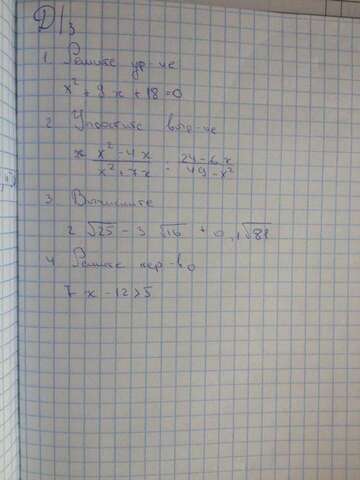 Д/з
1. Решите ур-ие
x² + 9x + 18 = 0
2. Упростите выр-ие
x x² - 4x / x² + 7x : 24 - 6x / 49 - x²
3. Вычислите
2√25 - 3√16 + 0,1√81
4. Решите нер-во
7x - 12 > 5